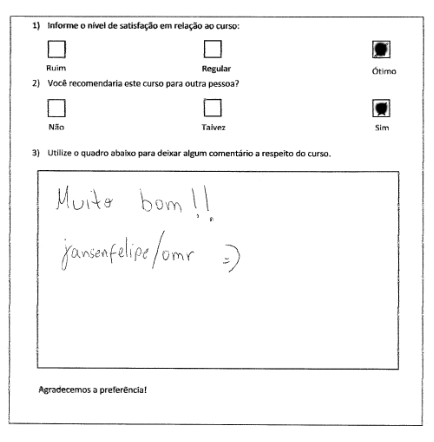 1) Informe o nível de satisfação em relação ao curso:
Ruim Regular Ótimo
2) Você recomendaria este curso para outra pessoa?
Não Talvez Sim
3) Utilize o quadro abaixo para deixar algum comentário a respeito do curso.
Muito bom!!
jansenfelipe/omr =)
Agradecemos a preferência!